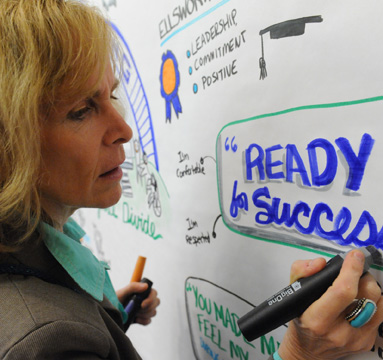 ELLSWORTH
LEADERSHIP
COMMITMENT
POSITIVE
I'm
Comfortable
"READY
for Success
I'm
Respected
Divide
"YOU MADE
FEEL MY
BigOne